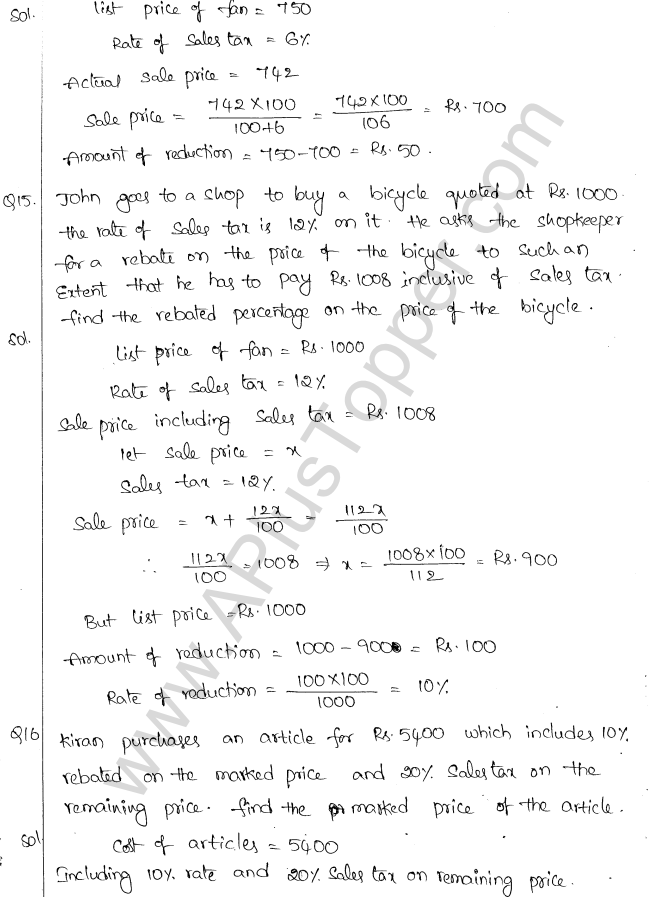 Sol. List price of fan = 750
Rate of sales tax = 6%
Actual sale price = 742
Sale price = 742×100 / 100+6 = 742×100 / 106 = Rs. 700
Amount of reduction = 750-700 = Rs. 50.
Q15. John goes to a shop to buy a bicycle quoted at Rs. 1000.
the rate of sales tax is 12% on it. He asks the shopkeeper
for a rebate on the price of the bicycle to such an
Extent that he has to pay Rs. 1008 inclusive of sales tax.
find the rebated percentage on the price of the bicycle.
Sol.
List price of fan = Rs. 1000
Rate of sales tax = 12%
Sale price including sales tax = Rs. 1008
let sale price = x
Sales tax = 12%.
Sale price = x + 12x/100 = 112x/100
∴ 112x/100 = 1008 ⇒ x = 1008×100 / 112 = Rs. 900
But list price = Rs. 1000
Amount of reduction = 1000 - 900 = Rs. 100
Rate of reduction = 100×100 / 1000 = 10%
Q16 Kiran purchases an article for Rs. 5400 which includes 10%
rebated on the marked price and 20% Sales tax on the
remaining price. find the marked price of the article.
Sol Cost of articles = 5400
Including 10% rate and 20% Sales tax on remaining price.
www.APlusTopper.com